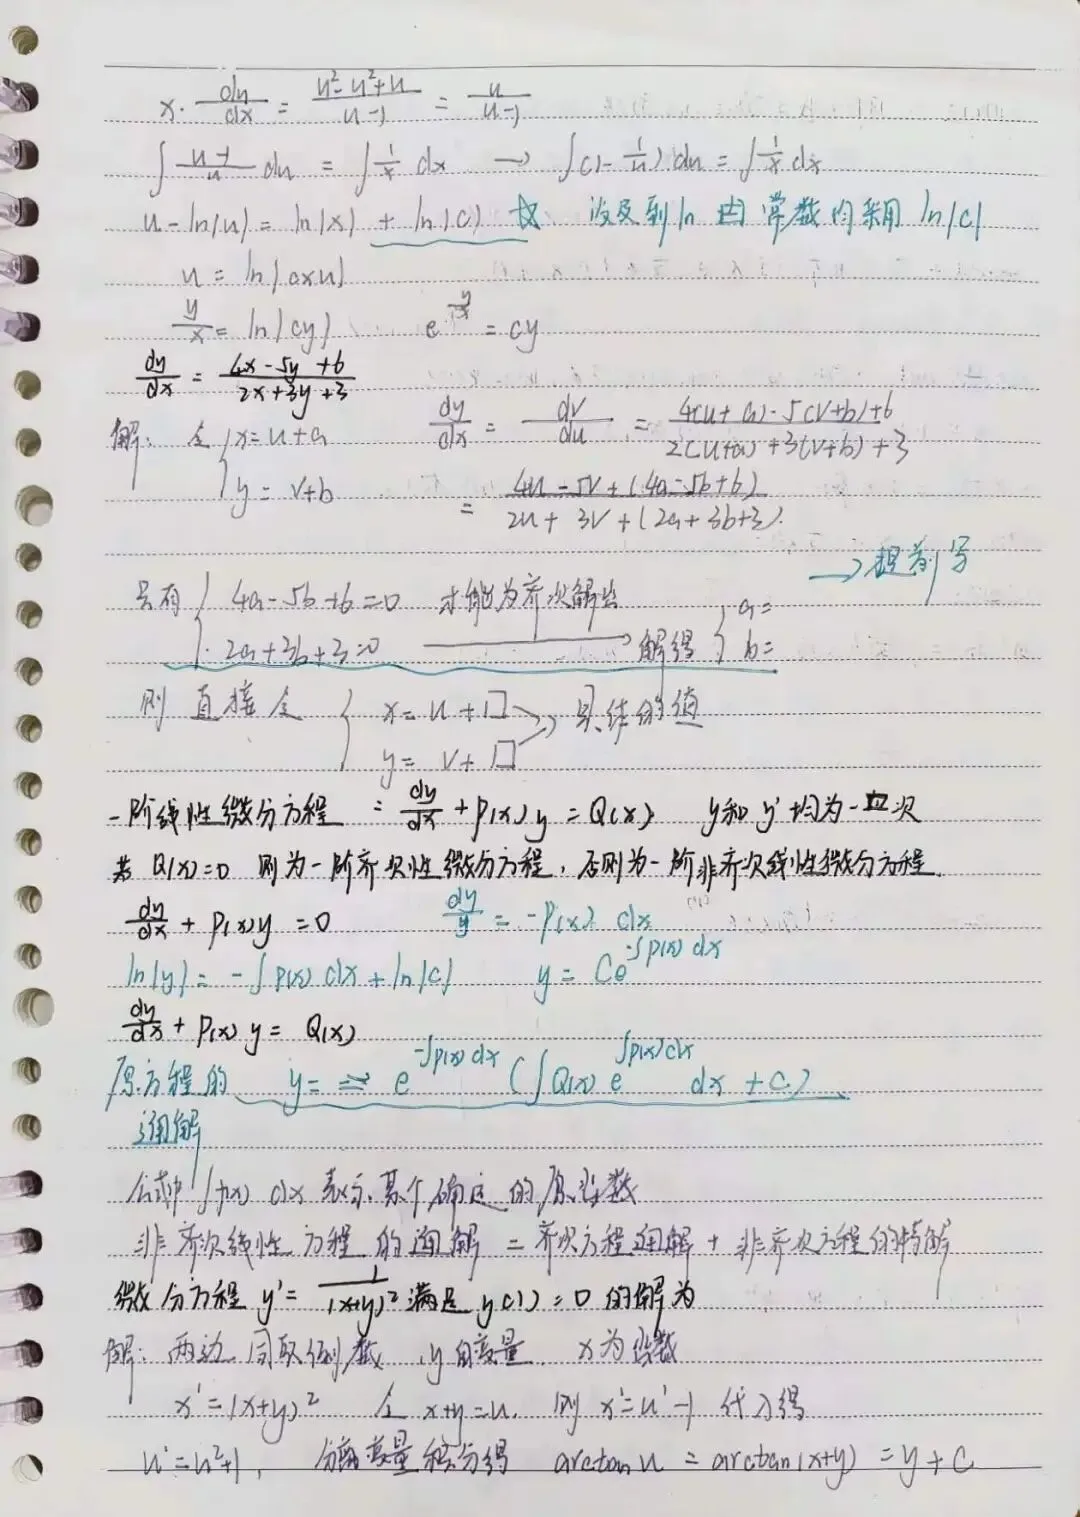 x·du/dx = (u²-u²+u)/(u-1) = u/(u-1)
∫(u-1)/u du = ∫1/x dx → ∫(1-1/u)du = ∫1/x dx
u-ln|u| = ln|x| + ln|C| 涉及到ln 常数均采用 ln|C|
u = ln|cxu|
y/x = ln|cy| e^(y/x) = cy
dy/dx = (4x-5y+6)/(2x+3y+3)
解: 令 { x=u+a dy/dx = dv/du = (4(u+a)-5(v+b)+6)/(2(u+a)+3(v+b)+3)
y=v+b = (4u-5v+(4a-5b+6))/(2u+3v+(2a+3b+3))
→提前写
只有 { 4a-5b+6=0 才能为齐次解出 { a=
2a+3b+3=0 → 解得 b=
则直接令 { x=u+□ 具体的值
y=v+□
一阶线性微分方程 = dy/dx + P(x)y = Q(x) y和y'均为一次
若Q(x)=0 则为一阶齐次性微分方程,否则为一阶非齐次线性微分方程.
dy/dx + P(x)y = 0 dy/y = -P(x) dx
ln|y| = -∫P(x) dx + ln|C| y = Ce^(-∫P(x) dx)
dy/dx + P(x)y = Q(x)
原方程的 y = e^(-∫P(x) dx) (∫Q(x) e^(∫P(x) dx) dx + C)
通解
公式中 ∫f(x) dx 表示某个确定的原函数
非齐次线性方程的通解 = 齐次方程通解 + 非齐次方程的特解
微分方程 y' = 1/(x+y)² 满足 y(1)=0 的解为
解: 两边同取倒数, y自变量 x为函数
x' = (x+y)² 令 x+y=u. 则 x'=u'-1 代入得
u'=u²+1, 分离变量积分得 arctan u = arctan(x+y) = y + C